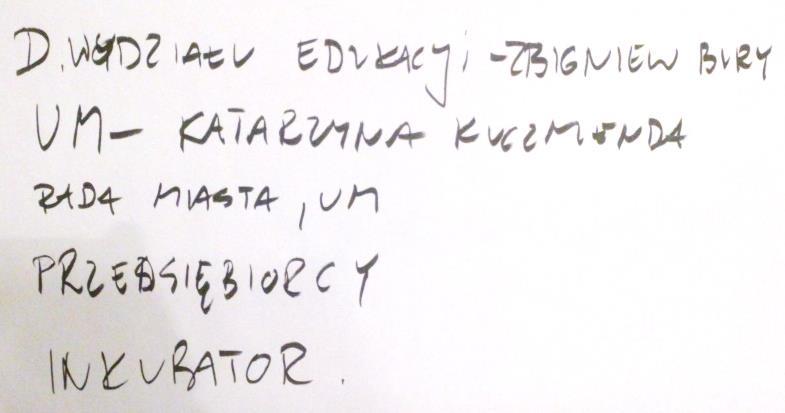 D. WYDZIAŁU EDUKACJI - ZBIGNIEW BURY
UM - KATARZYNA KUCZMENDA
RADA MIASTA, UM
PRZEDSIĘBIORCY
INKUBATOR.